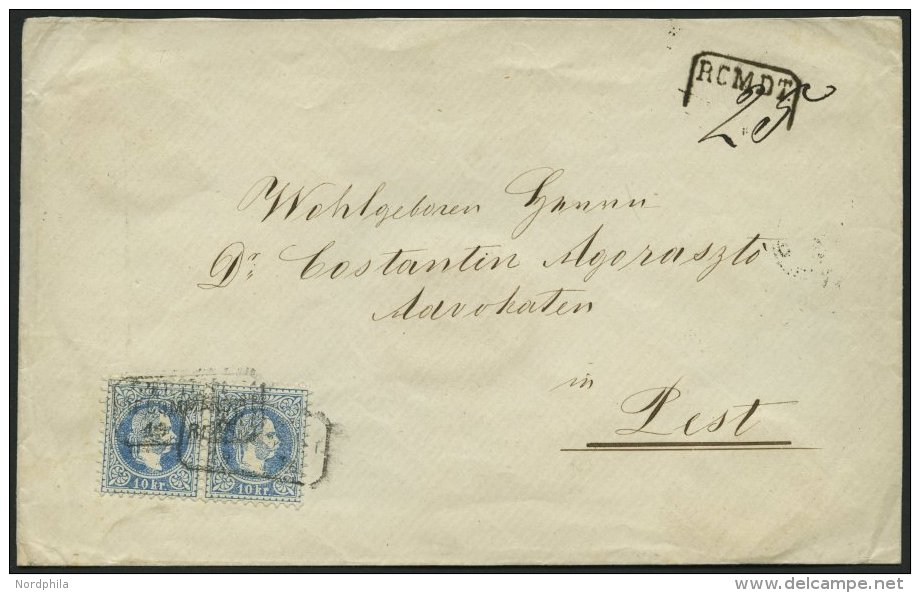 RCMDT
25
Wohlgeboren Herrn
Dr. Costantin Agoraszto
Advokaten
in
Pest
10 kr. 10 kr.
Nordphila
www.delcampe.net